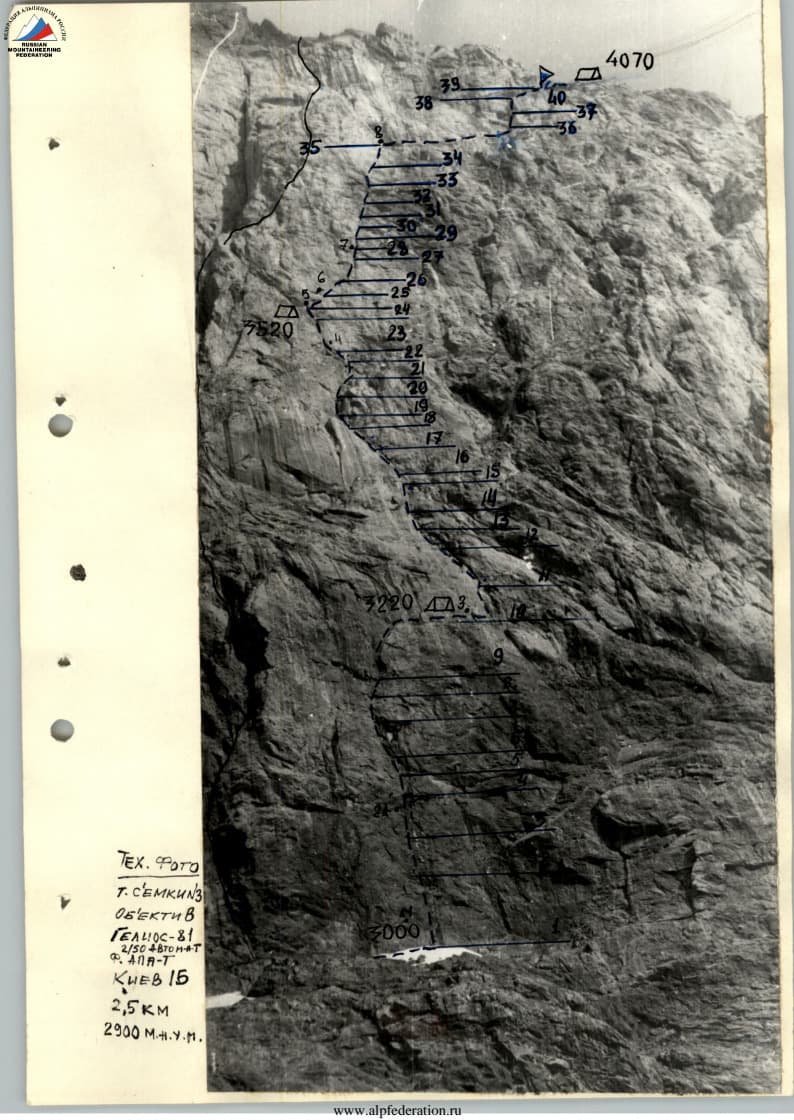 ФЕДЕРАЦИЯ АЛЬПИНИЗМА РОССИИ
RUSSIAN
MOUNTAINEERING
FEDERATION
4070
39
40
38
37
36
8
35
34
33
32
31
30
29
7
28
27
6
26
5
25
24
3520
23
4
22
21
20
19
18
17
16
15
14
13
12
11
3220
3
10
9
8
5
4
3000
1
ТЕХ. ФОТО
Т. СЪЕМКИ №3
ОБЪЕКТИВ
ГЕЛИОС-81
2/50 АВТОМАТ
Ф. АПА-Т
КИЕВ 15
2,5 КМ
2900 М.Н.У.М.
www.alpfederation.ru